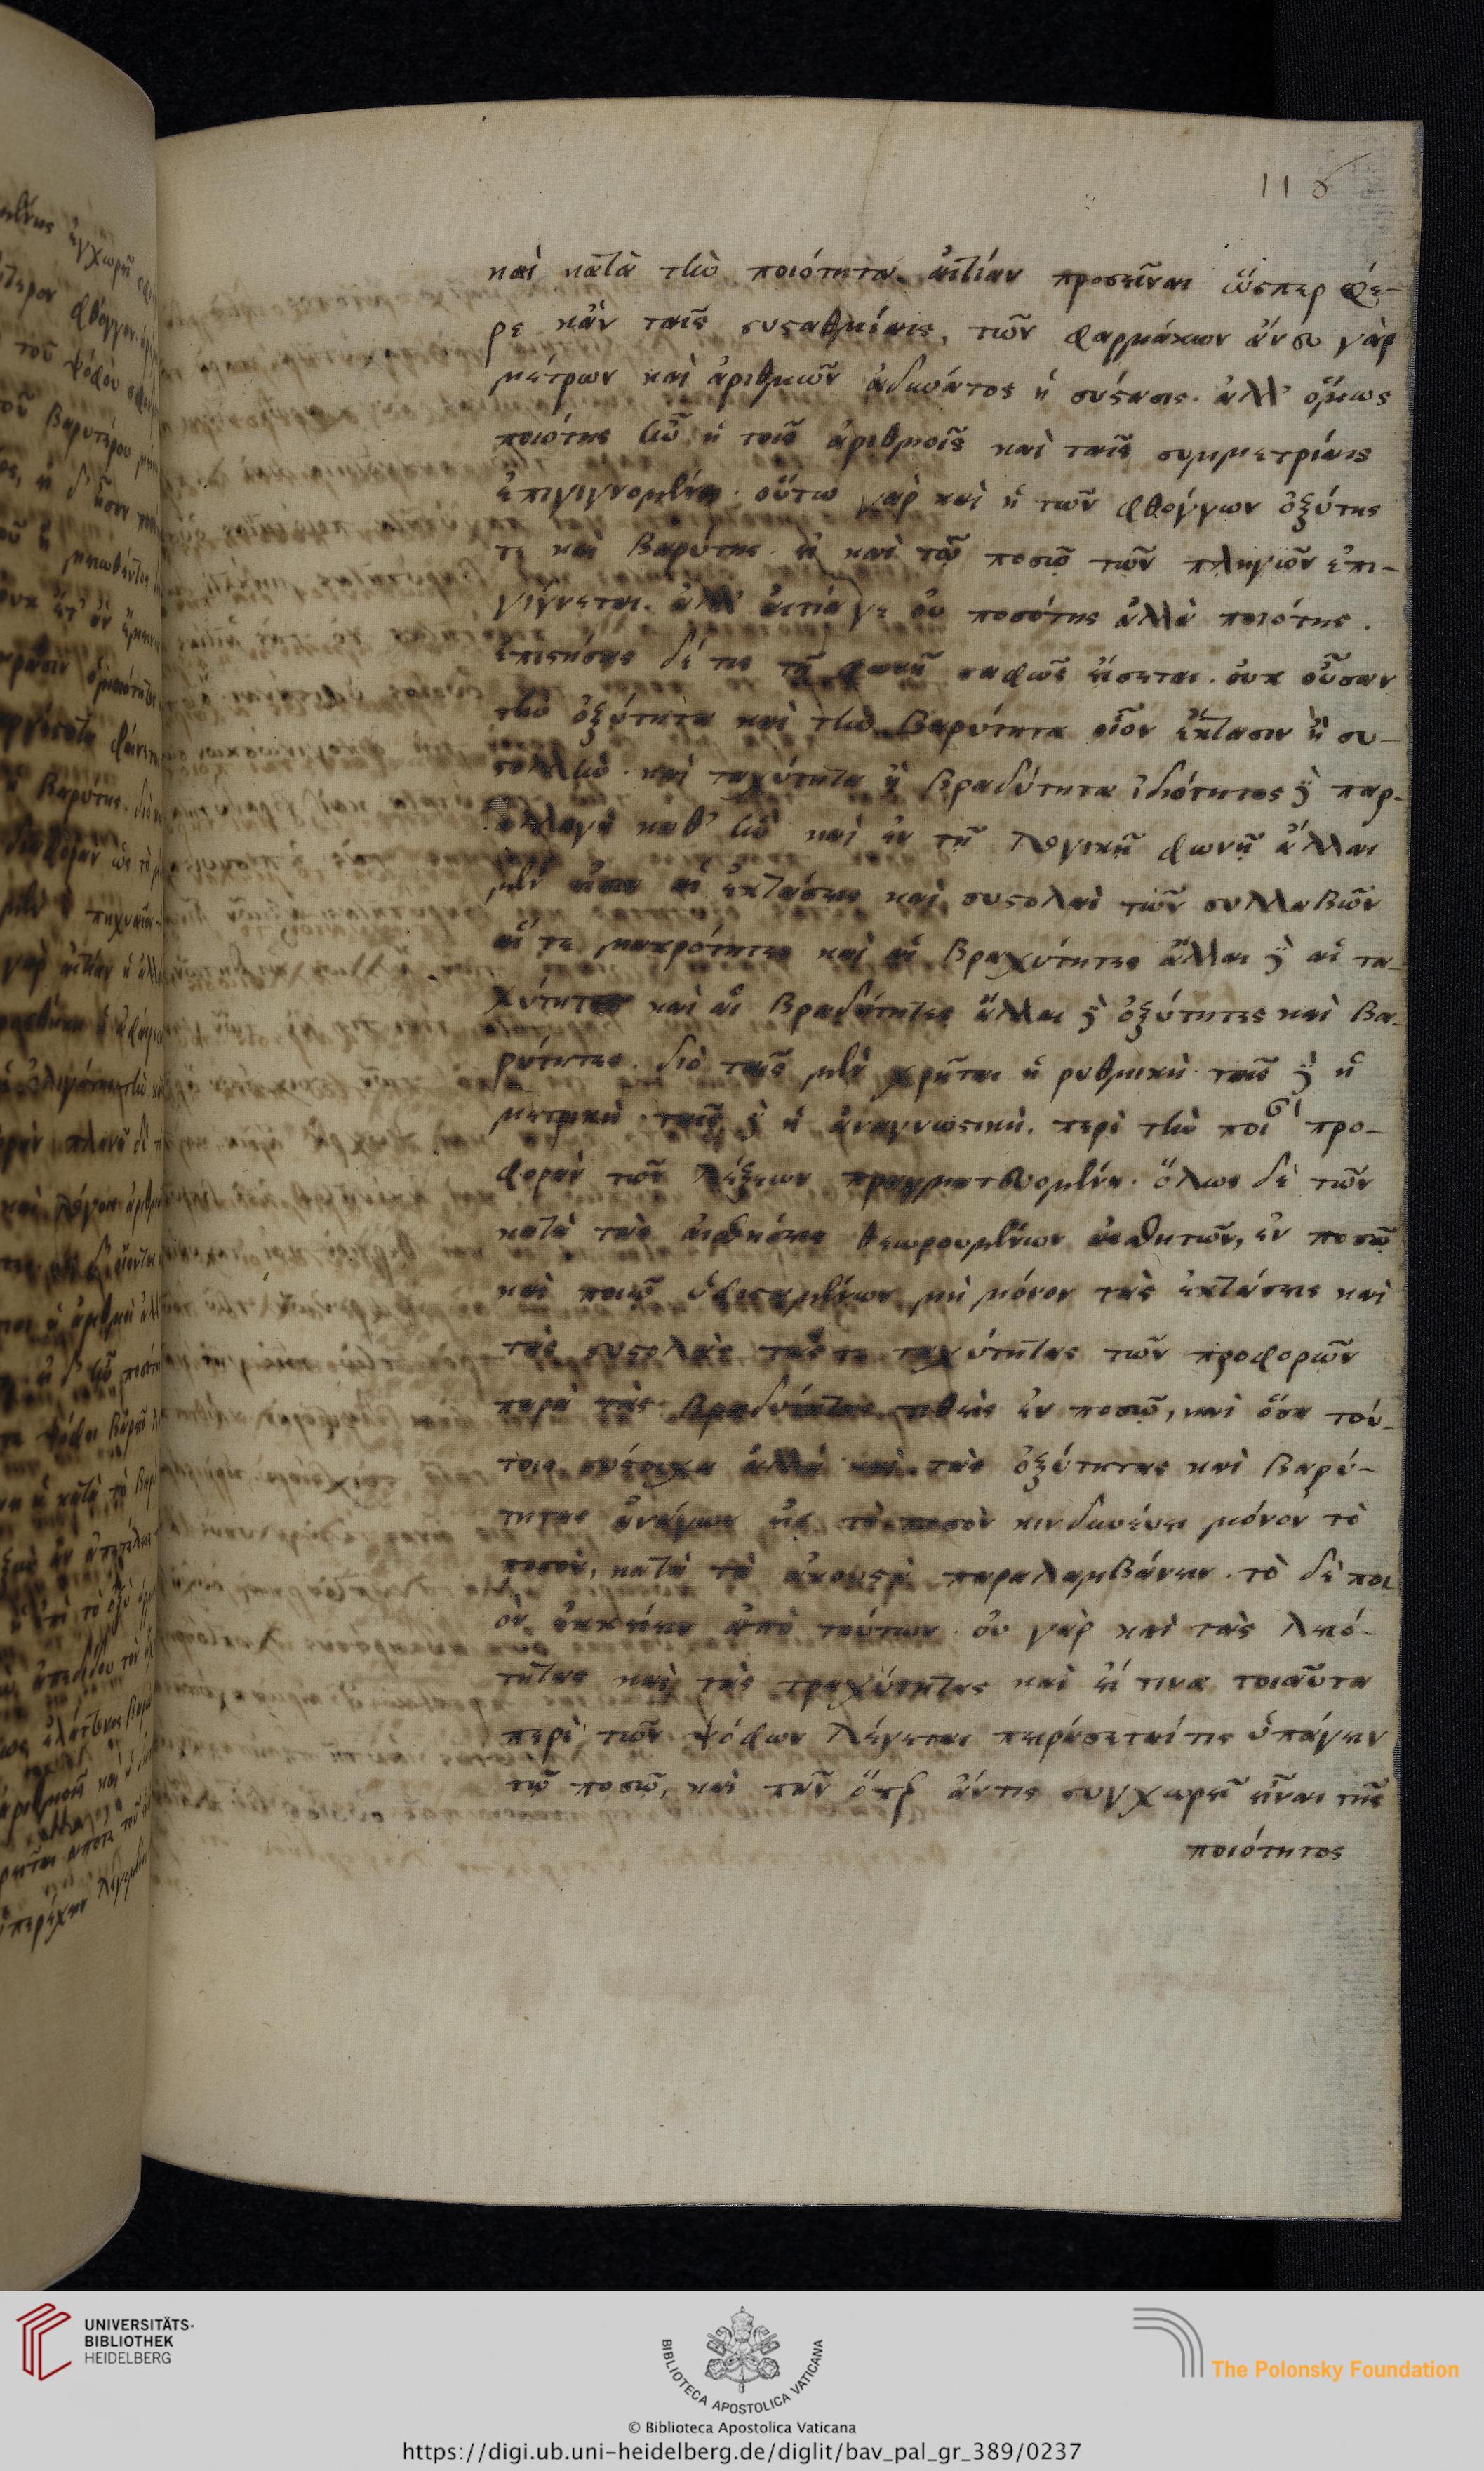 116
καὶ κατὰ τὴν ποιότητα αἰτίαν προσεῖναι ὥσπερ φέ-
ρε κἀν ταῖς συσταθμίαις, τῶν φαρμάκων ἄνευ γὰρ
μέτρων καὶ ἀριθμῶν ἀδυνάτος ἡ σύστασις. ἀλλ' ὅμως
ποιότης ἦν ἡ τοῖς ἀριθμοῖς καὶ ταῖς συμμετρίαις
ἐπιγιγνομένη. οὕτω γὰρ καὶ ἡ τῶν φθόγγων ὀξύτης
τε καὶ βαρύτης. εἰ καὶ τῷ ποσῷ τῶν πληγῶν ἐπι-
γίγνεται. ἀλλ' αἰτία γε οὐ ποσότης ἀλλὰ ποιότης.
ἐπιστήσας δέ τις τῇ φωνῇ σαφῶς εἴσεται. οὐκ οὖσαν
τὴν ὀξύτητα καὶ τὴν βαρύτητα οἷον ἔκτασιν ἢ συ-
στολὴν. καὶ ταχύτητα ἢ βραδύτητα ἰδιότητος δὲ παρ-
αλλαγὴ καθ' ἣν καὶ ἐν τῇ λογικῇ φωνῇ ἄλλαι
μέν εἰσιν αἱ ἐκτάσεις καὶ συστολαὶ τῶν συλλαβῶν
αἵ τε μακρότητες καὶ αἱ βραχύτητες ἄλλαι δὲ αἱ τα-
χύτητες καὶ αἱ βραδύτητες ἄλλαι δὲ ὀξύτητες καὶ βα-
ρύτητες. διὸ ταῖς μὲν χρῆται ἡ ρυθμικὴ ταῖς δὲ ἡ
μετρικὴ. ταῖς δὲ ἡ ἀναγνωστικὴ. περὶ τὴν ποι προ-
φορὰν τῶν λέξεων πραγματευομένη. ὅλως δὲ τῶν
κατὰ τὰς αἰσθήσεις θεωρουμένων αἰσθητῶν, ἐν ποσῷ
καὶ ποιῷ ὑφισταμένων μὴ μόνον τὰς ἐκτάσεις καὶ
τὰς συστολὰς τάς τε ταχύτητας τῶν προφορῶν
παρὰ τὰς βραδύτητας τιθεὶς ἐν ποσῷ, καὶ ὅσα τού-
τοις σύστοιχα ἀλλὰ καὶ τὰς ὀξύτητας καὶ βαρύ-
τητας ἀνάγων εἰς τὸ ποσὸν κινδυνεύει μόνον τὸ
ποσὸν, κατὰ τὰ ἀκουστὰ παραλαμβάνειν. τὸ δὲ ποι
ὸν ἐκκρίνειν ἀπὸ τούτων. οὐ γὰρ καὶ τὰς λειό-
τητας καὶ τὰς τραχύτητας καὶ εἴ τινα τοιαῦτα
περὶ τῶν ψόφων λέγεται πειράσεταί τις ὑπάγειν
τῷ ποσῷ, καὶ πᾶν ὅπερ ἄντις συγχωρεῖ εἶναι τῆς
ποιότητος
UNIVERSITÄTS-
BIBLIOTHEK
HEIDELBERG
BIBLIOTECA APOSTOLICA VATICANA
The Polonsky Foundation
© Biblioteca Apostolica Vaticana
https://digi.ub.uni-heidelberg.de/diglit/bav_pal_gr_389/0237